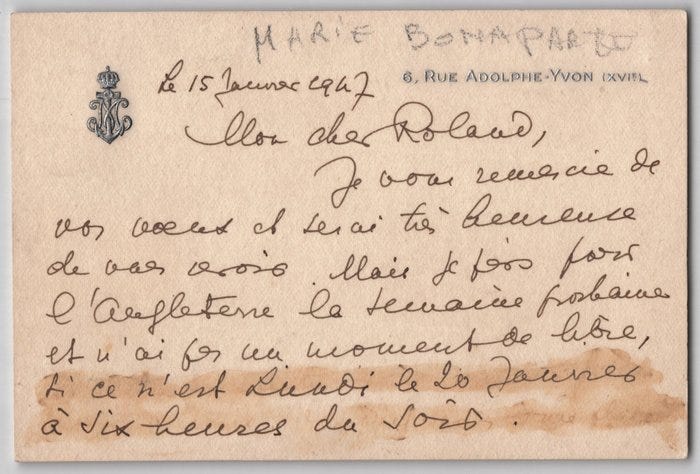 MARIE BONAPARTE
6, RUE ADOLPHE-YVON (XVIE)
Le 15 Janvier 1947
Mon cher Roland,
Je vous remercie de
vos vœux et serai très heureuse
de vous revoir. Mais je pars pour
l'Angleterre la semaine prochaine
et n'ai pas un moment de libre,
si ce n'est Lundi le 20 Janvier
à six heures du soir.